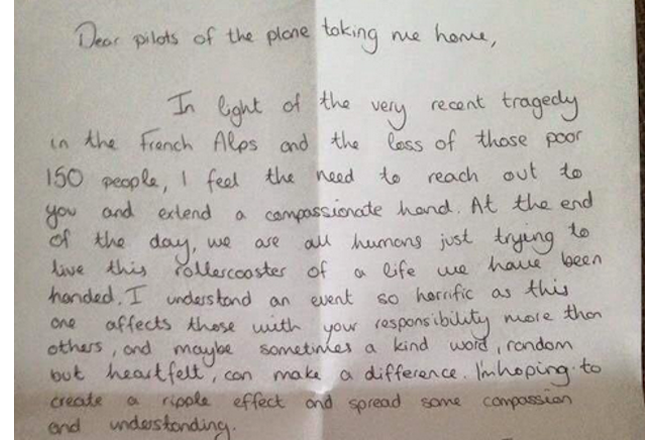 Dear pilots of the plane taking me home,
In light of the very recent tragedy
in the French Alps and the loss of those poor
150 people, I feel the need to reach out to
you and extend a compassionate hand. At the end
of the day, we are all humans just trying to
live this rollercoaster of a life we have been
handed. I understand an event so horrific as this
one affects those with your responsibility more than
others, and maybe sometimes a kind word, random
but heartfelt, can make a difference. I'm hoping to
create a ripple effect and spread some compassion
and understanding.